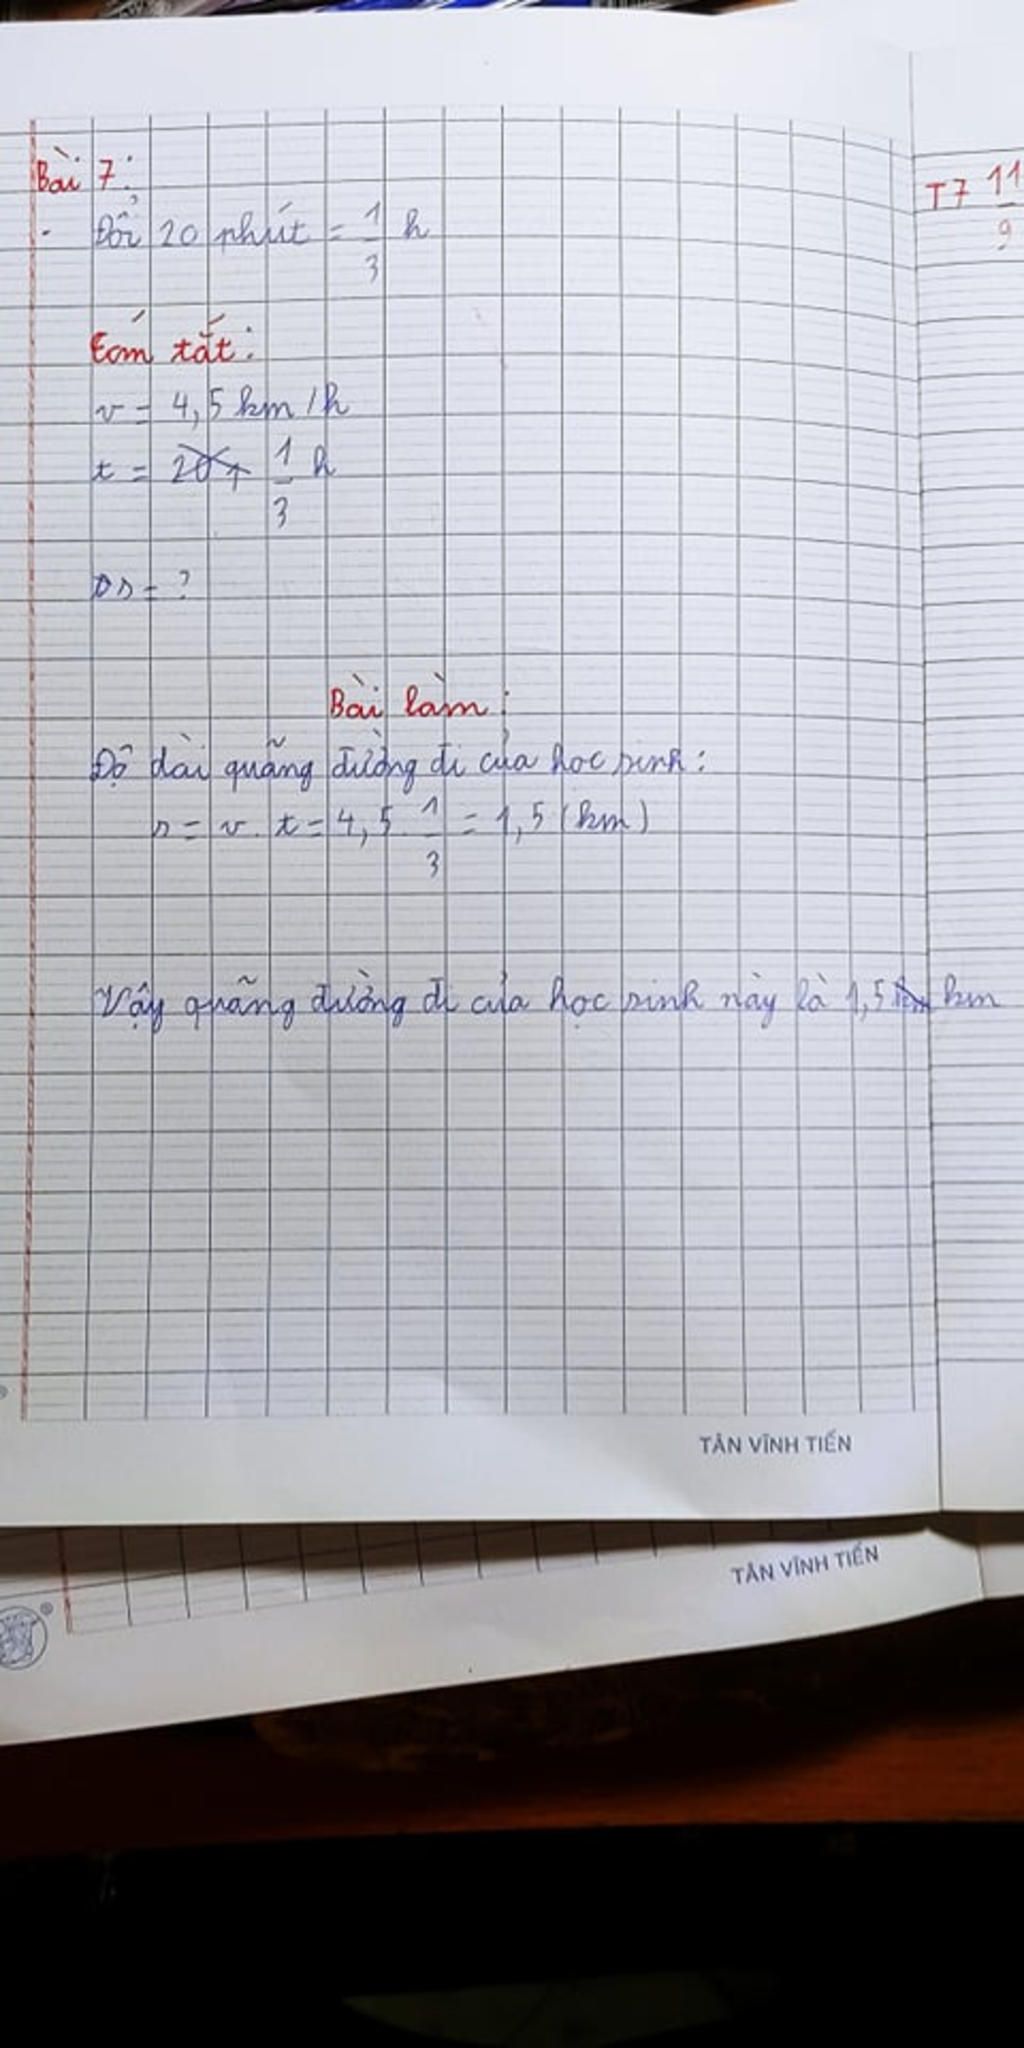 Bài 7:
T7 11/9
- Đổi 20 phút = 1/3 h
Tóm tắt:
v = 4,5 km/h
t = 1/3 h
s = ?
Bài làm:
Độ dài quãng đường đi của học sinh:
s = v. t = 4,5. 1/3 = 1,5 (km)
Vậy quãng đường đi của học sinh này là 1,5 km
TÂN VĨNH TIẾN
TÂN VĨNH TIẾN